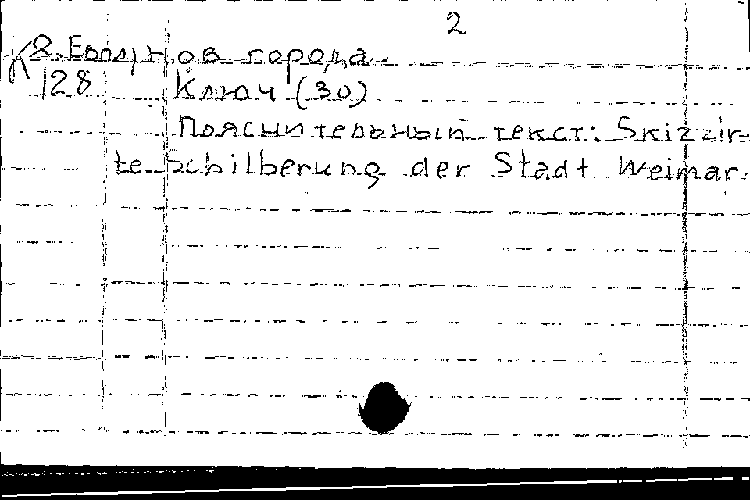 2
К 2. Евр
128 нов города.
Ключ (30)
Пояснительный текст: Skizzir-
te Schilberung der Stadt Weimar.